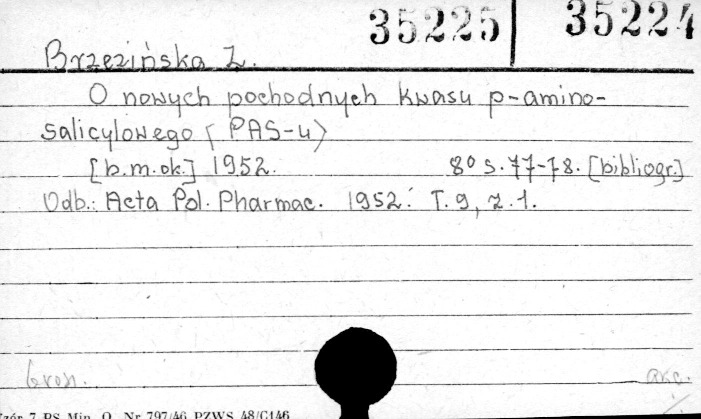 35225 | 35224
Brzezińska Z.
O nowych pochodnych kwasu p-amino-
salicylowego (PAS-u)
[b.m.ok.] 1952. 8° s. 77-78. [bibliogr.]
Odb.: Acta Pol. Pharmac. 1952. T. 9, z. 1.
akc.
Wzór 7 PS Min. O. Nr 797/46 PZWS 48/C146